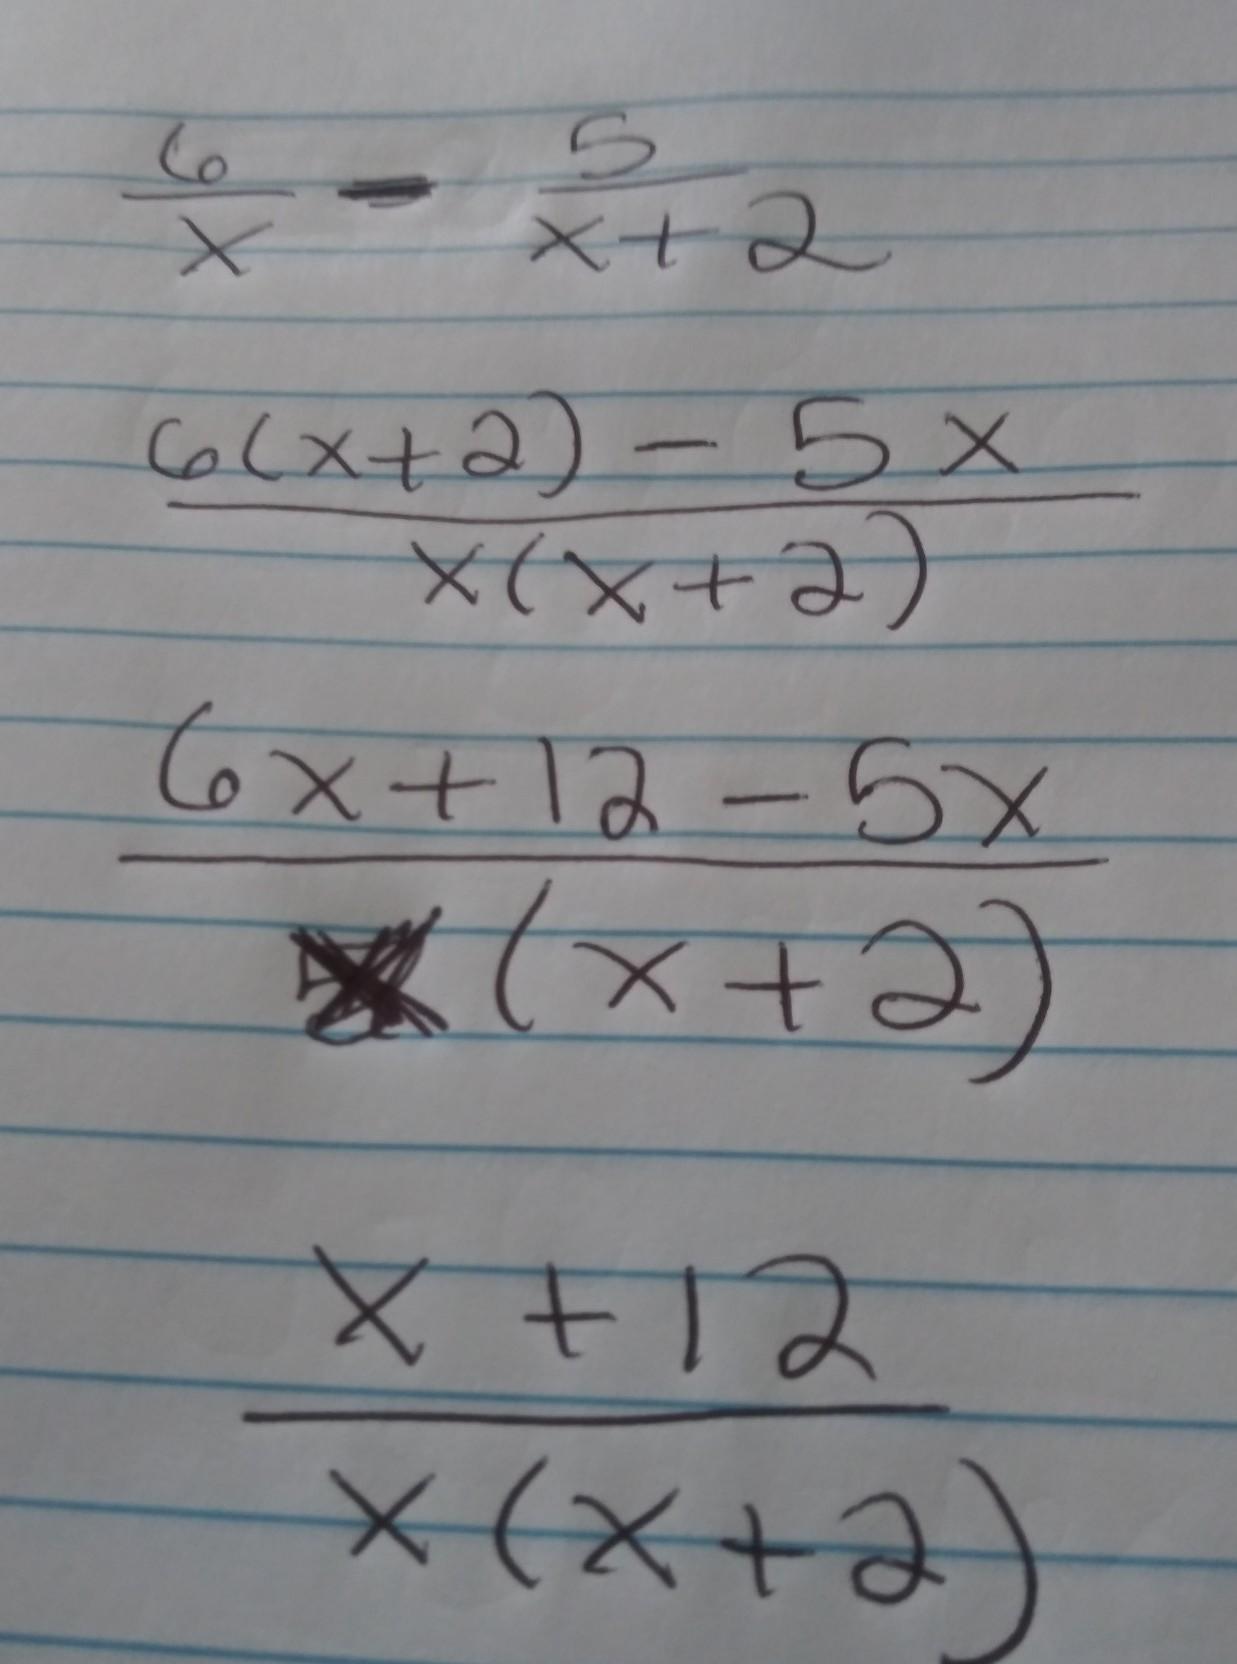 6/x - 5/x+2
6(x+2) - 5x
x(x+2)
6x+12-5x
x(x+2)
x+12
x(x+2)